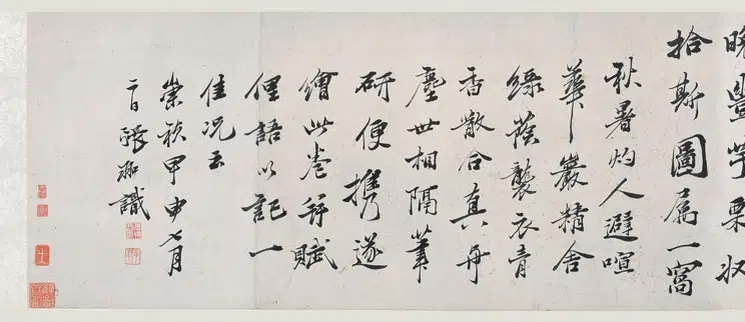 晚豐芋栗收
拾斯圖屬一窩
秋暑灼人避喧
華嚴精舍
綠蔭襲衣青
香散合真
塵世相隔筆
研便攜遂
繪此卷并賦
俚語以記一
佳況云
崇禎甲申七月
日張識